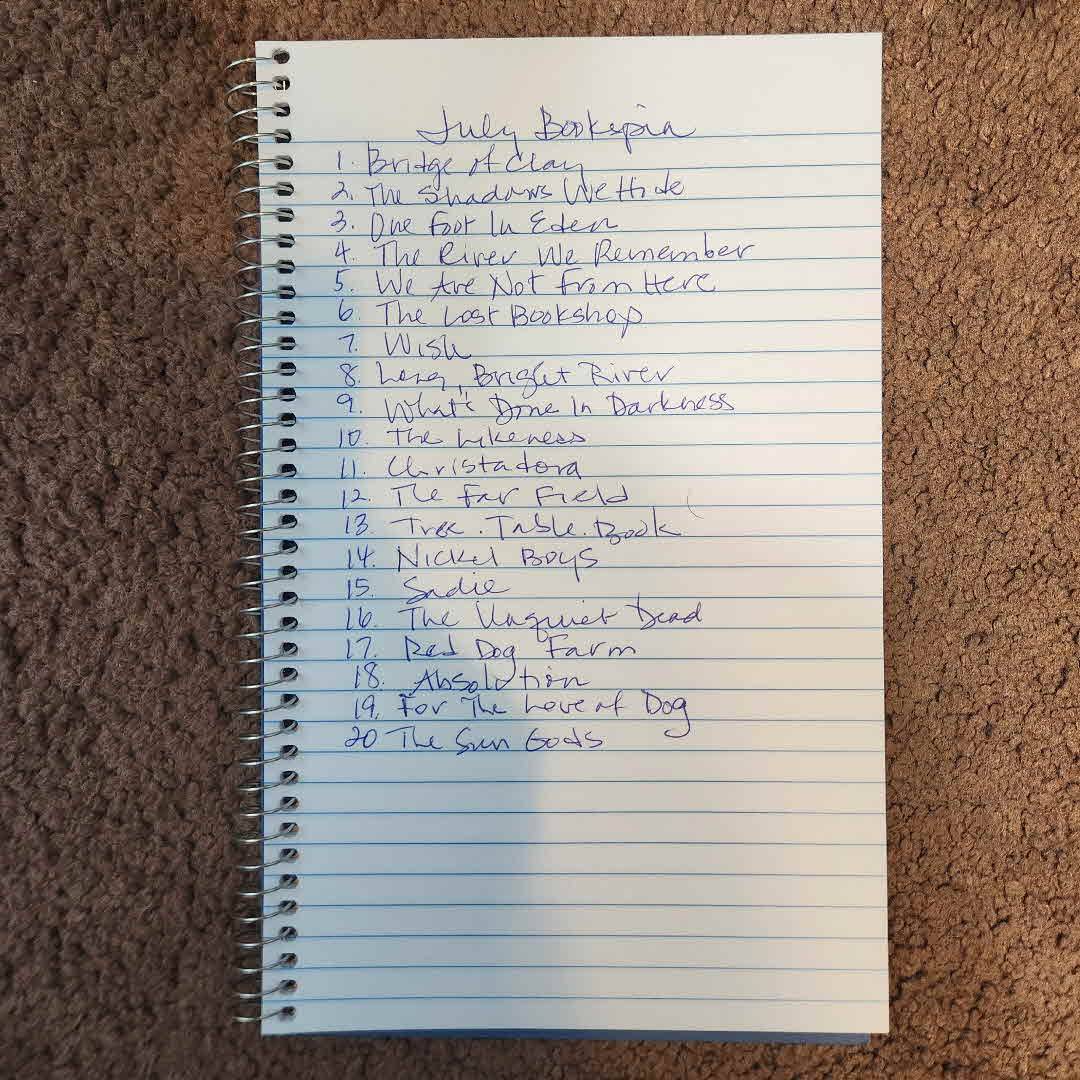 July Bookspin
1. Bridge of Clay
2. The Shadows We Hide
3. One Foot In Eden
4. The River We Remember
5. We Are Not From Here
6. The Lost Bookshop
7. Wish
8. Long, Bright River
9. What's Done In Darkness
10. The Likeness
11. Christadora
12. The Far Field
13. Tree. Table. Book
14. Nickel Boys
15. Sadie
16. The Unquiet Dead
17. Red Dog Farm
18. Absolution
19. For The Love of Dog
20 The Sun Gods